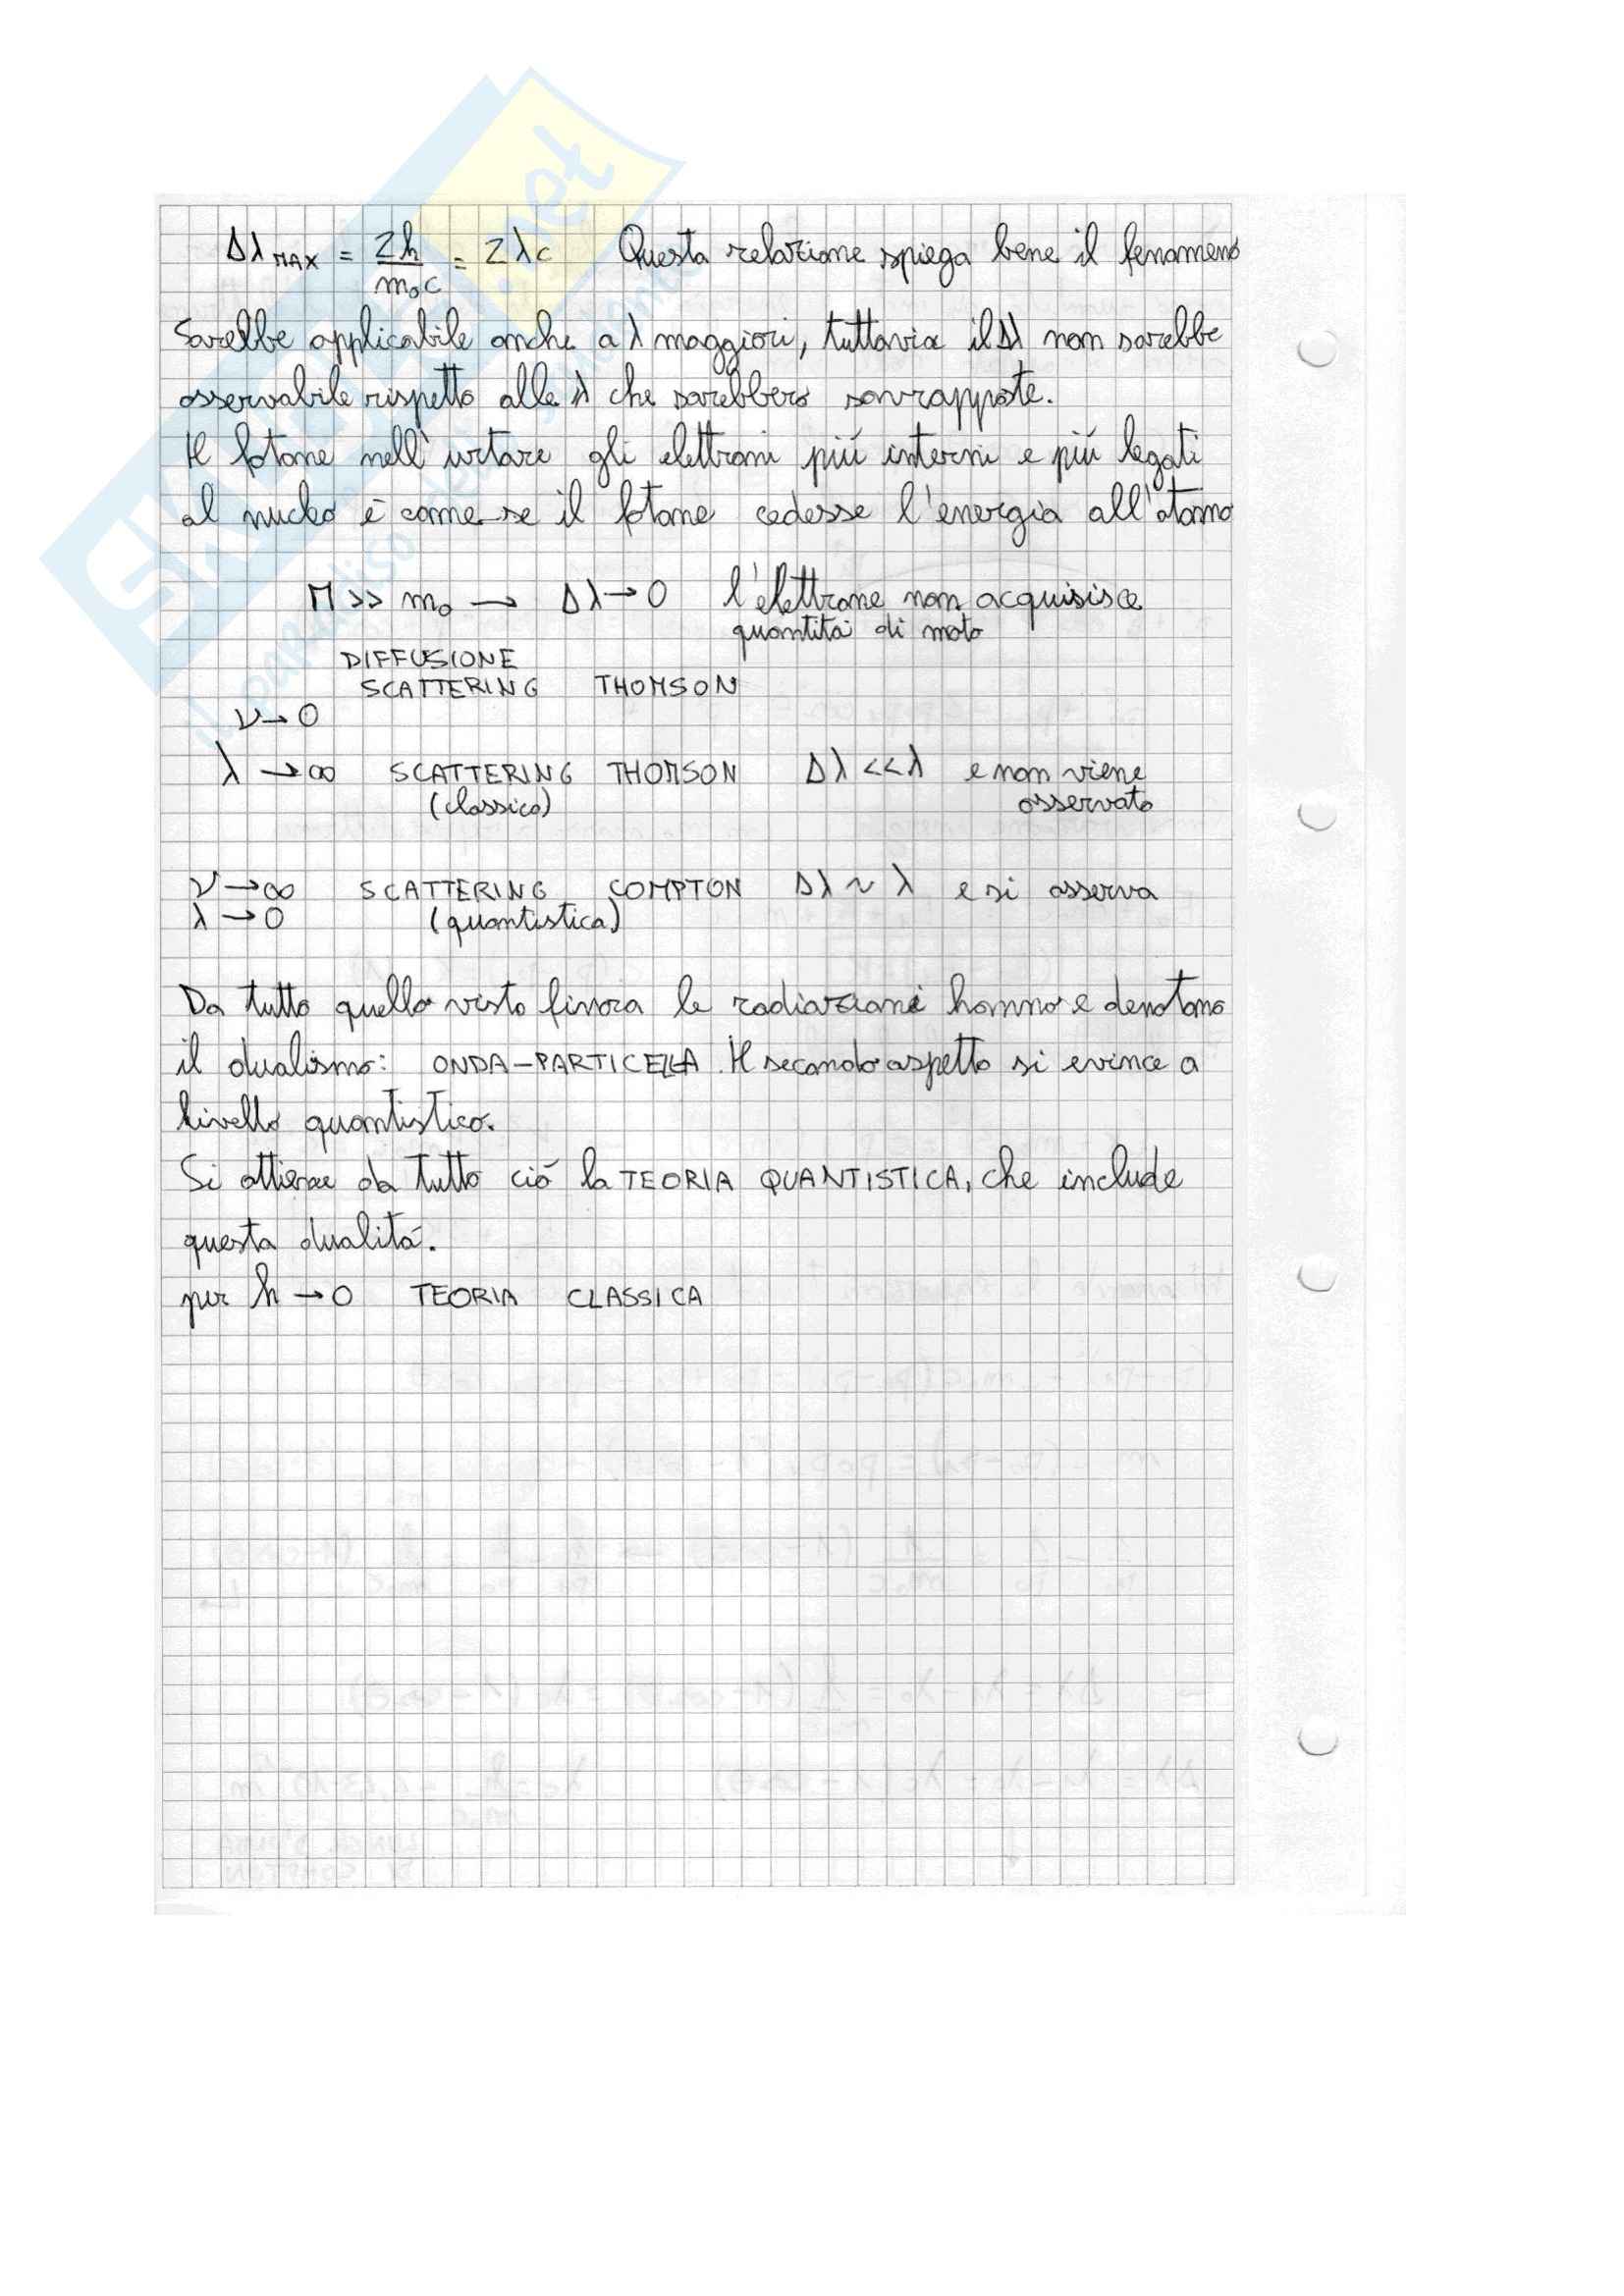 Δλ MAX = 2h/m₀c = 2λc Questa relazione spiega bene il fenomeno
Sarebbe applicabile anche a λ maggiori, tuttavia il Δλ non sarebbe
osservabile rispetto alle λ che sarebbero sovrapposte.
Il fotone nell'urtare gli elettroni più interni e più legati
al nucleo è come se il fotone cedesse l'energia all'atomo
M >> m₀ → Δλ → 0 l'elettrone non acquisisce
quantità di moto
DIFFUSIONE
SCATTERING THOMSON
ν → 0
λ → ∞ SCATTERING THOMSON Δλ << λ e non viene
(classica) osservato
ν → ∞ SCATTERING COMPTON Δλ ~ λ e si osserva
λ → 0 (quantistica)
Da tutto quello visto finora le radiazioni hanno e denotano
il dualismo: ONDA-PARTICELLA. Il secondo aspetto si evince a
livello quantistico.
Si ottiene da tutto ciò la TEORIA QUANTISTICA, che include
questa dualità.
per h → 0 TEORIA CLASSICA
SKUOLA.net